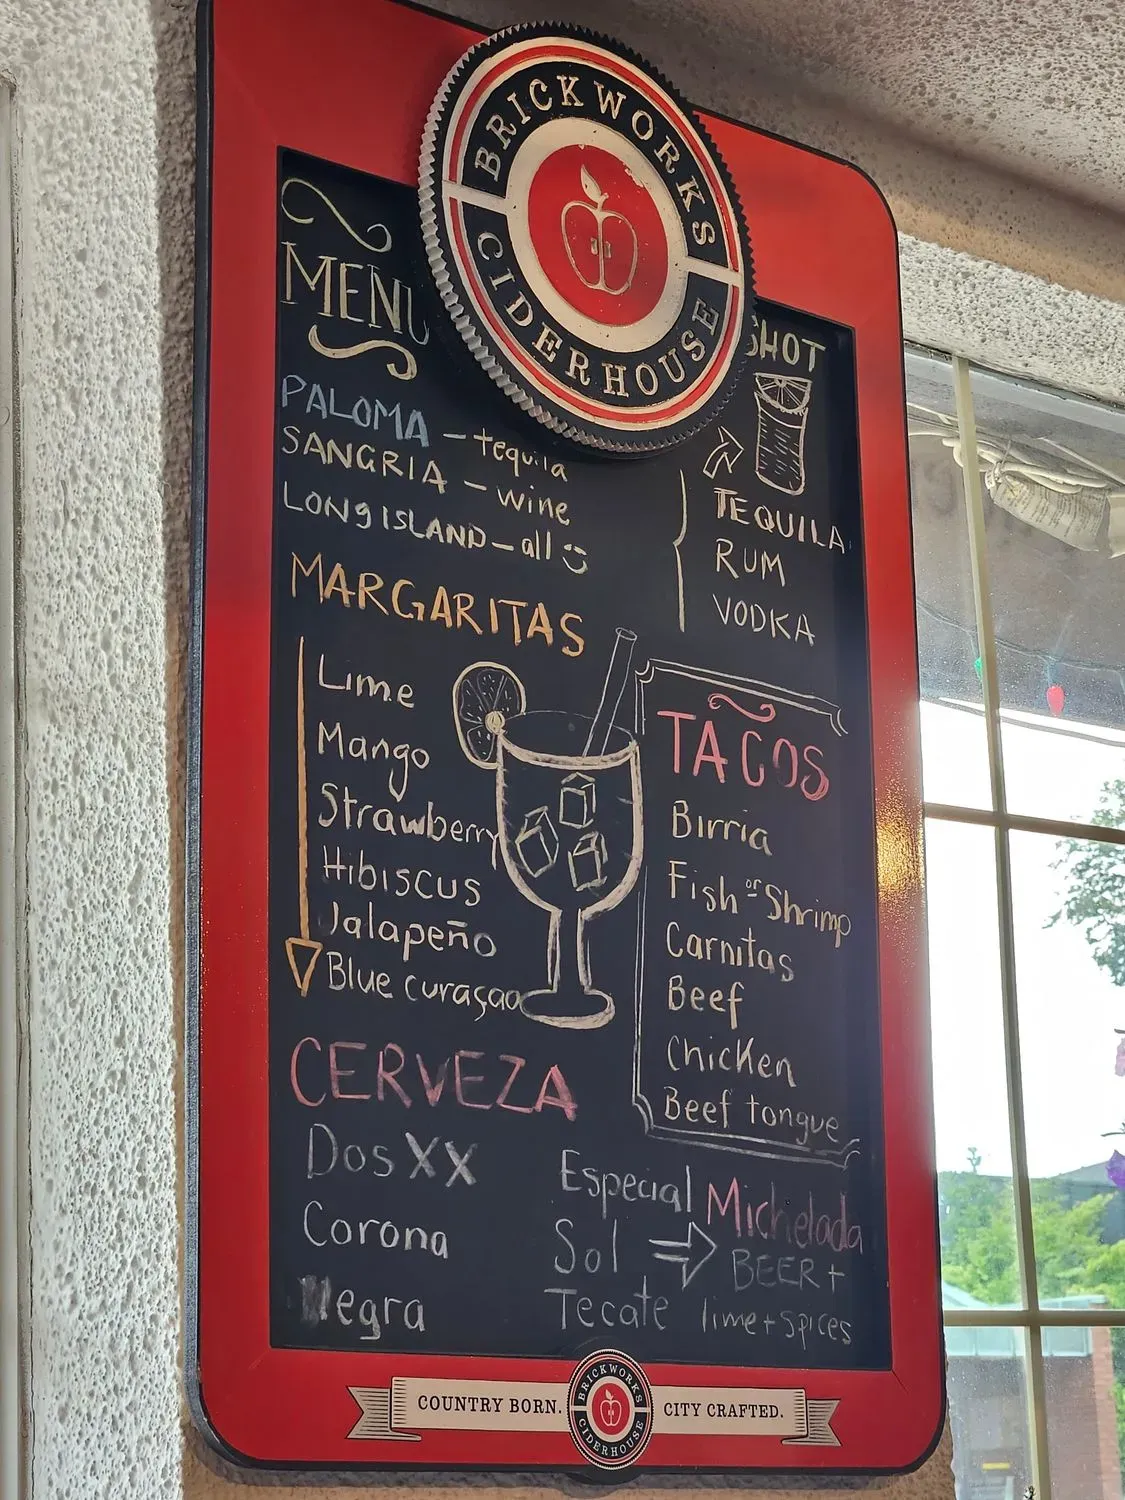 BRICKWORKS
CIDERHOUSE
MENU
PALOMA - tequila
SANGRIA - wine
LONG ISLAND - all
SHOT
TEQUILA
RUM
VODKA
MARGARITAS
Lime
Mango
Strawberry
Hibiscus
Jalapeño
Blue curaçao
TACOS
Birria
Fish or Shrimp
Carnitas
Beef
Chicken
Beef tongue
CERVEZA
Dos XX
Corona
Negra
Especial
Sol
Tecate
Michelada
BEER +
lime + spices
COUNTRY BORN.
BRICKWORKS
CIDERHOUSE
CITY CRAFTED.